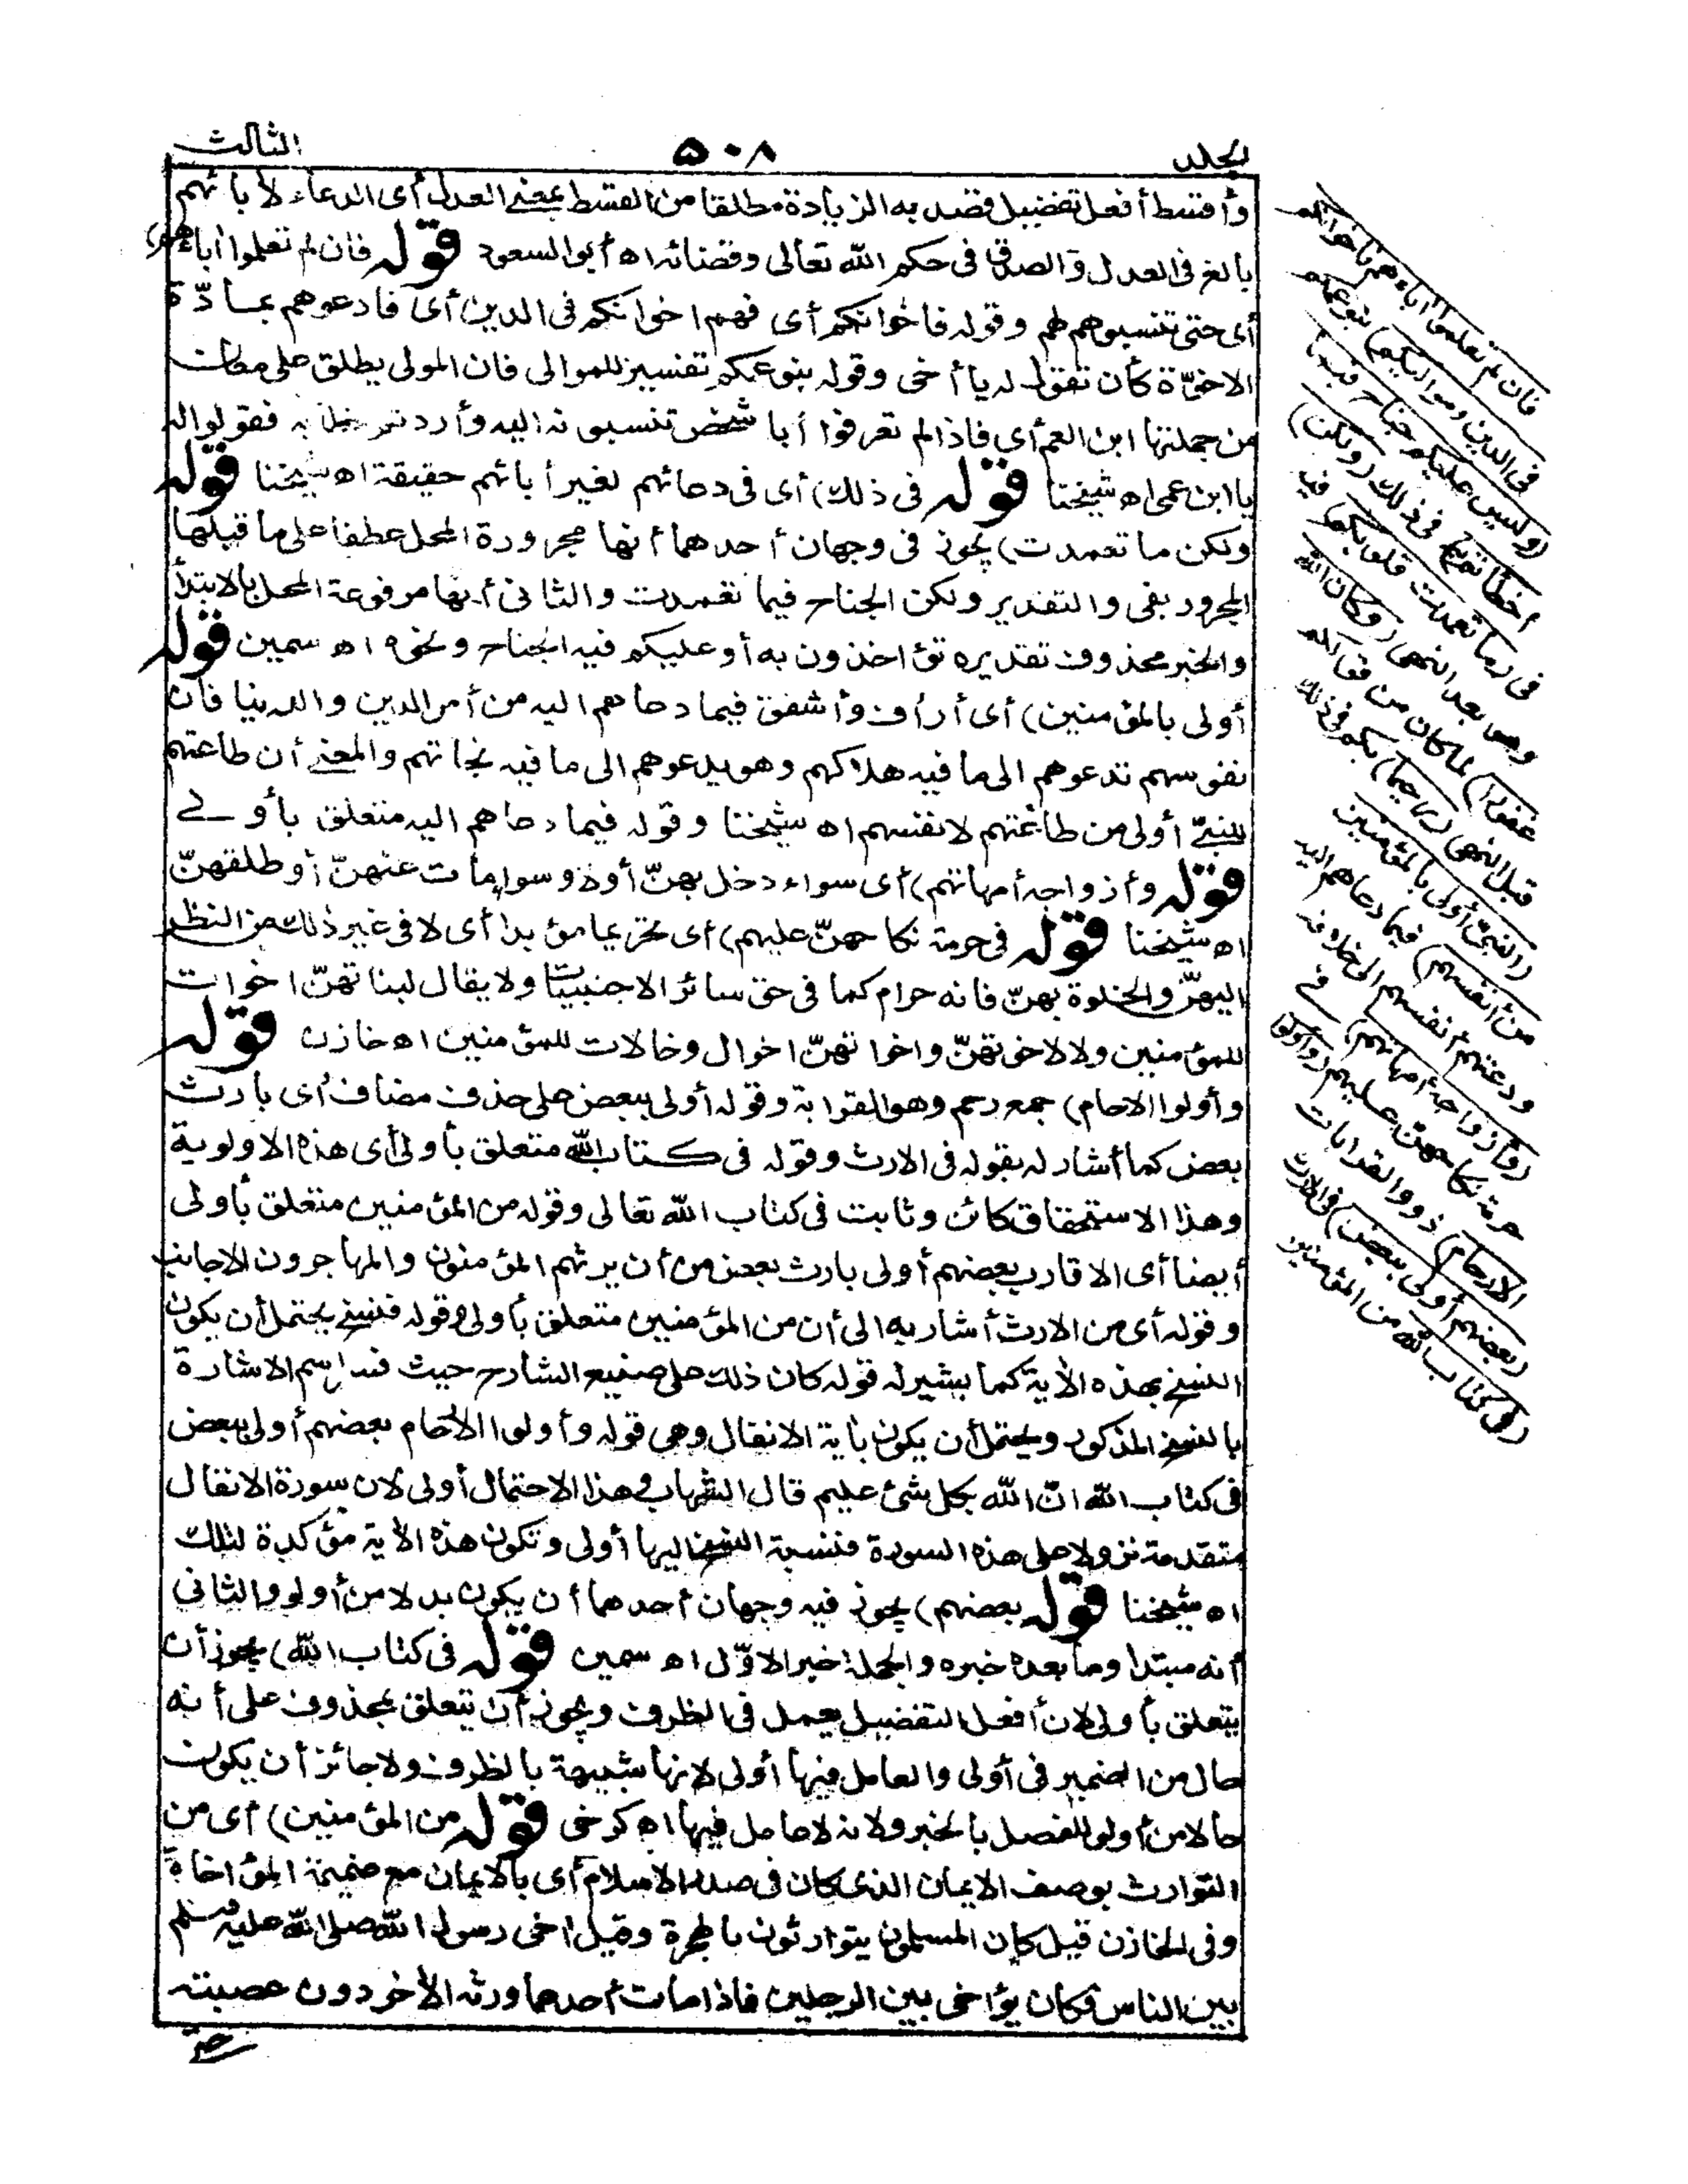 المجلد
٥٠٨
الثالث
وأقسط أفعل تفضيل قصد به الزيادة مطلقا من القسط بمعنى العدل أى الدعاء لأبائهم
بالغ فى العدل والصدق فى حكم الله تعالى وقضائه اه أبو السعود قوله فان لم تعلموا أباءهم)
أى حتى تنسبوهم لهم وقوله فاخوانكم أى فهم اخوانكم فى الدين أى فادعوهم بمادّة
الاخوّة كأن تقول له يا أخى وقوله بنو عمكم تفسير للموالى فان المولى يطلق على معان
من جملتها ابن العم أى فاذا لم تعرفوا أبا شخص تنسبونه اليه وأردتم خطابه فقولوا له
يا ابن عمى اه شيخنا قوله فى ذلك) أى فى دعائهم لغير أبائهم حقيقة اه شيخنا قوله
ولكن ما تعمدت) يجوز فى وجهان أحدهما أنها مجرورة المحل عطفا على ما قبلها
المجرور بفى والتقدير ولكن الجناح فيما تعمدت والثانى أنها مرفوعة المحل بالابتدأ
والخبر محذوف تقديره تؤاخذون به أو عليكم فيه الجناح ونحوه اه سمين قوله
أولى بالمؤمنين) أى أرأف وأشفق فيما دعاهم اليه من أمر الدين والدنيا فان
نفوسهم تدعوهم الى ما فيه هلاكهم وهو يدعوهم الى ما فيه نجاتهم والمعنى أن طاعتهم
للنبىّ أولى من طاعتهم لانفسهم اه شيخنا وقوله فيما دعاهم اليه متعلق بأولى
قوله وأزواجه أمهاتهم) أى سواء دخل بهنّ أو لا وسواء مات عنهنّ أو طلقهنّ
اه شيخنا قوله فى حرمة نكاحهنّ عليهم) أى تحريما مؤبدا أى لا فى غير ذلك من النظر
اليهنّ والخلوة بهنّ فانه حرام كما فى حق سائر الاجنبيات ولا يقال لبناتهنّ اخوات
للمؤمنين ولا لاخوتهنّ واخواتهنّ اخوال وخالات للمؤمنين اه خازن قوله
وأولوا الارحام) جمع رحم وهو القرابة وقوله أولى ببعض على حذف مضاف أى بارث
بعض كما أشار له بقوله فى الارث وقوله فى كتاب الله متعلق بأولى أى هذه الاولوية
وهذا الاستحقاق كائن وثابت فى كتاب الله تعالى وقوله من المؤمنين متعلق بأولى
أيضا أى الاقارب بعضهم أولى بارث بعض من أن يرثهم المؤمنون والمهاجرون الاجانب
وقوله أى من الارث أشار به الى أن من المؤمنين متعلق بأولى وقوله فنسخ يحتمل أن يكون
النسخ بهذه الأية كما يشير له قوله كان ذلك على صنيع الشارح حيث فسر اسم الاشارة
بالنسخ المذكور ويحتمل أن يكون بأية الانفال وهى قوله وأولوا الارحام بعضهم أولى ببعض
فى كتاب الله انّ الله بكل شئ عليم قال الشهاب وهذا الاحتمال أولى لان سورة الانفال
متقدمة نزولا على هذه السورة فنسبة النسخ اليها أولى وتكون هذه الأية مؤكدة لتلك
اه شيخنا قوله بعضهم) يجوز فيه وجهان أحدهما أن يكون بدلا من أولو والثانى
أنه مبتدا وما بعده خبره والجملة خبر الاوّل اه سمين قوله فى كتاب الله) يجوز أن
يتعلق بأولى لان أفعل التفضيل يعمل فى الظرف ويجوز أن يتعلق بمحذوف على أنه
حال من الضمير فى أولى والعامل فيها أولى لانها شبيهة بالظرف ولا جائز أن يكون
حالا من أولو للفصل بالخبر ولانه لا عامل فيها اه كرخى قوله من المؤمنين) أى من
التوارث بوصف الايمان الذى كان فى صدر الاسلام أى بالايمان مع ضميمة المؤاخاة
وفى الخازن قيل كان المسلمون يتوارثون بالهجرة وقيل اخى رسول الله صلى الله عليه وسلم
بين الناس فكان يؤاخى بين الرجلين فاذا مات أحدهما ورثه الأخر دون عصبته
حتى
فان لم تعلموا أباءهم فاخوانكم
فى الدين ومواليكم) بنو عمكم
(وليس عليكم جناح فيما
أخطأتم به) فى ذلك (ولكن)
فى (ما تعمدت قلوبكم) فيه
وهو بعد النهى (وكان الله
غفورا) لما كان من قولكم
قبل النهى (رحيما) بكم فى ذلك
(النبىّ أولى بالمؤمنين
من أنفسهم) فيما دعاهم اليه
ودعتهم أنفسهم الى خلافه
(وأزواجه أمهاتهم) فى
حرمة نكاحهنّ عليهم (وأولوا
الارحام) ذووا القرابات
(بعضهم أولى ببعض) فى الارث
(فى كتاب الله من المؤمنين